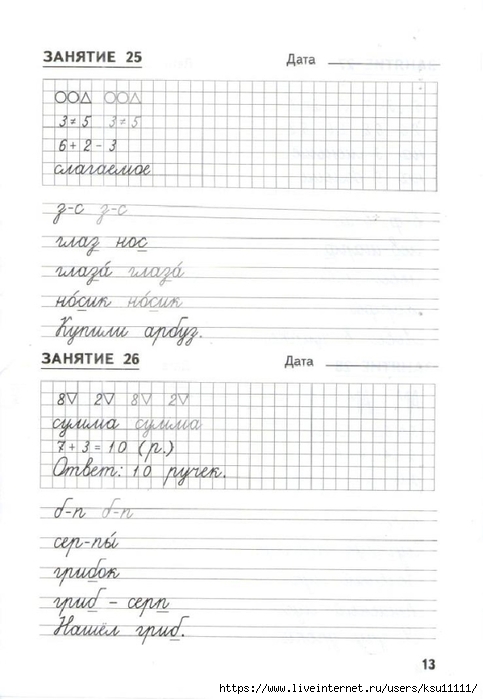 ЗАНЯТИЕ 25 Дата
○○△ ○○△
3 ≠ 5 3 ≠ 5
6 + 2 - 3
слагаемое
з-с з-с
глаз нос
глаза́ глаза́
но́сик но́сик
Купили арбуз.
ЗАНЯТИЕ 26 Дата
8▽ 2▽ 8▽ 2▽
сумма сумма
7 + 3 = 10 (р.)
Ответ: 10 ручек.
б-п б-п
сер-пы́
грибок
гриб - серп
Нашёл гриб.
13
https://www.liveinternet.ru/users/ksu11111/